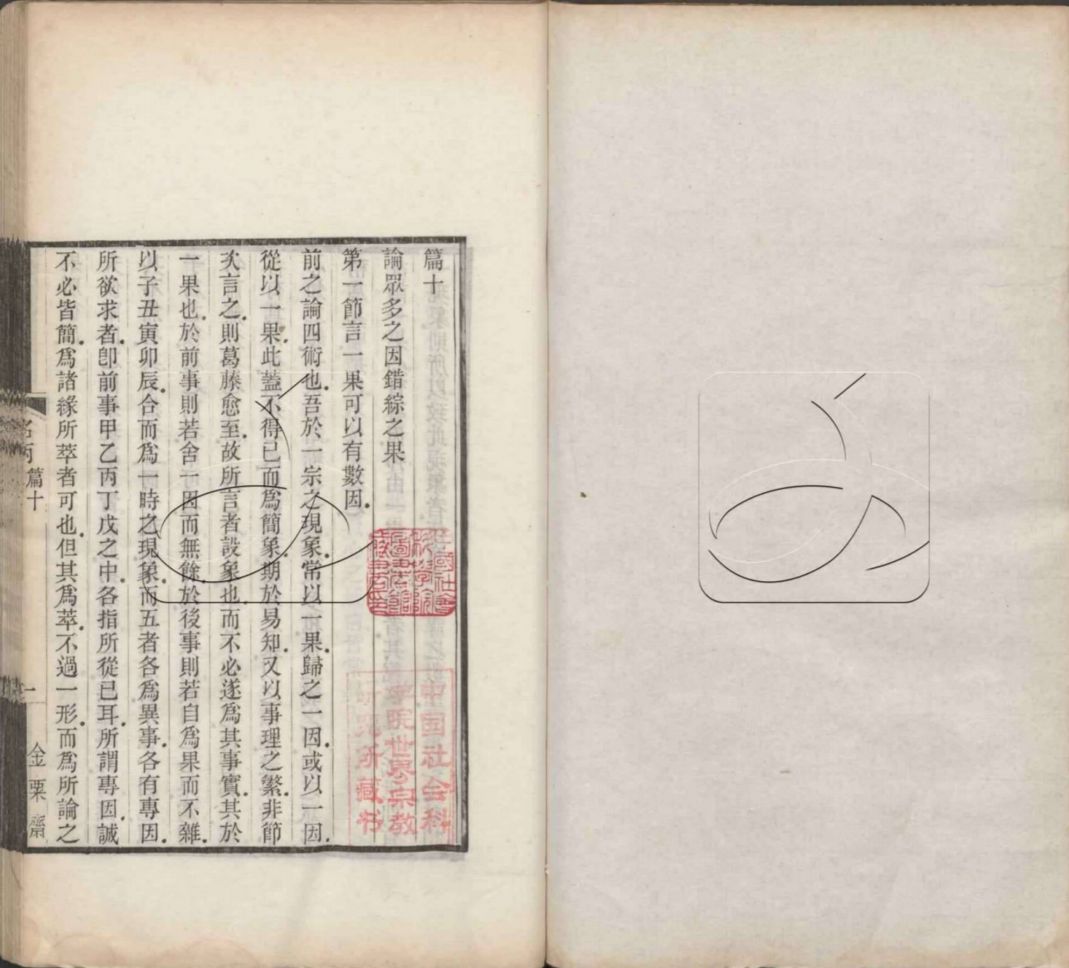 篇十
論眾多之因錯綜之果
第一節言一果可以有數因。
前之論四術也。吾於一宗之現象。常以一果。歸之一因。或以一因。
從以一果。此蓋不得已而爲簡象。期於易知。又以事理之繁。非節
次言之。則葛藤愈至。故所言者設象也。而不必遂爲其事實。其於
一果也。於前事則若舍一因而無餘。於後事則若自爲果而不雜。
以子丑寅卯辰。合而爲一時之現象。而五者各爲異事。各有專因。
所欲求者。卽前事甲乙丙丁戊之中。各指所從已耳。所謂專因。誠
不必皆簡。爲諸緣所萃者可也。但其爲萃。不過一形。而爲所論之
名丙 篇十
一
金粟齋
中国社会科
学院世界宗教
研究所藏书